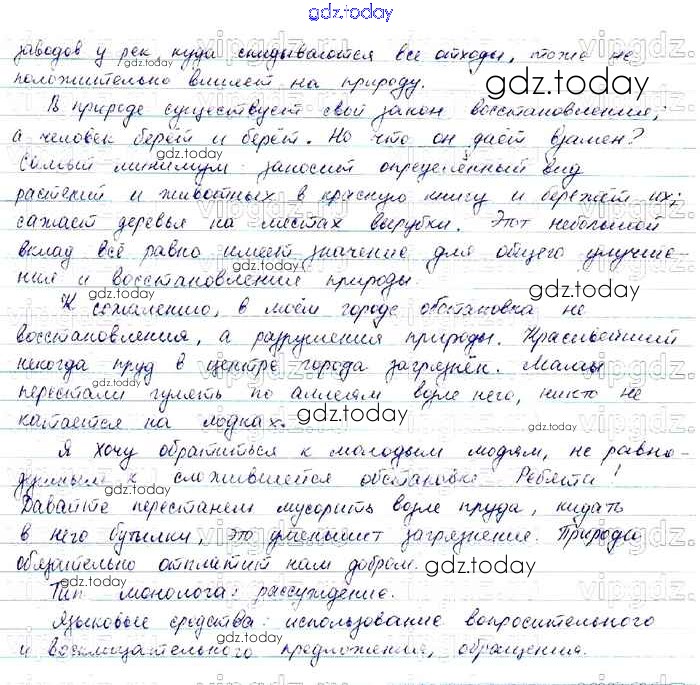 gdz.today
заводов у рек, куда скидываются все отходы, тоже не
положительно влияет на природу.
gdz.today
В природе существует свой закон восстановления;
а человек берёт и берёт. Но что он даёт взамен?
gdz.today
Самый минимум: заносит определённый вид
растений и животных в красную книгу и бережёт их;
gdz.today
сажает деревья на местах вырубки. Этот небольшой
вклад всё равно имеет значение для общего улучше-
gdz.today
ния и восстановления природы.
gdz.today
К сожалению, в моём городе обстановка не
восстановления, а разрушения природы. Красивейший
некогда пруд в центре города загрязнён. Мамы
gdz.today
перестали гулять по аллеям возле него, никто не
катается на лодках.
gdz.today
Я хочу обратиться к молодым людям, не равно-
душным к сложившейся обстановке. Ребята!
gdz.today
Давайте перестанем мусорить возле пруда, кидать
в него бутылки, это уменьшит загрязнение. Природа
обязательно отплатит нам добром.
gdz.today
Тип монолога: рассуждение.
gdz.today
Языковые средства: использование вопросительного
и восклицательного предложения, обращения.
gdz.today